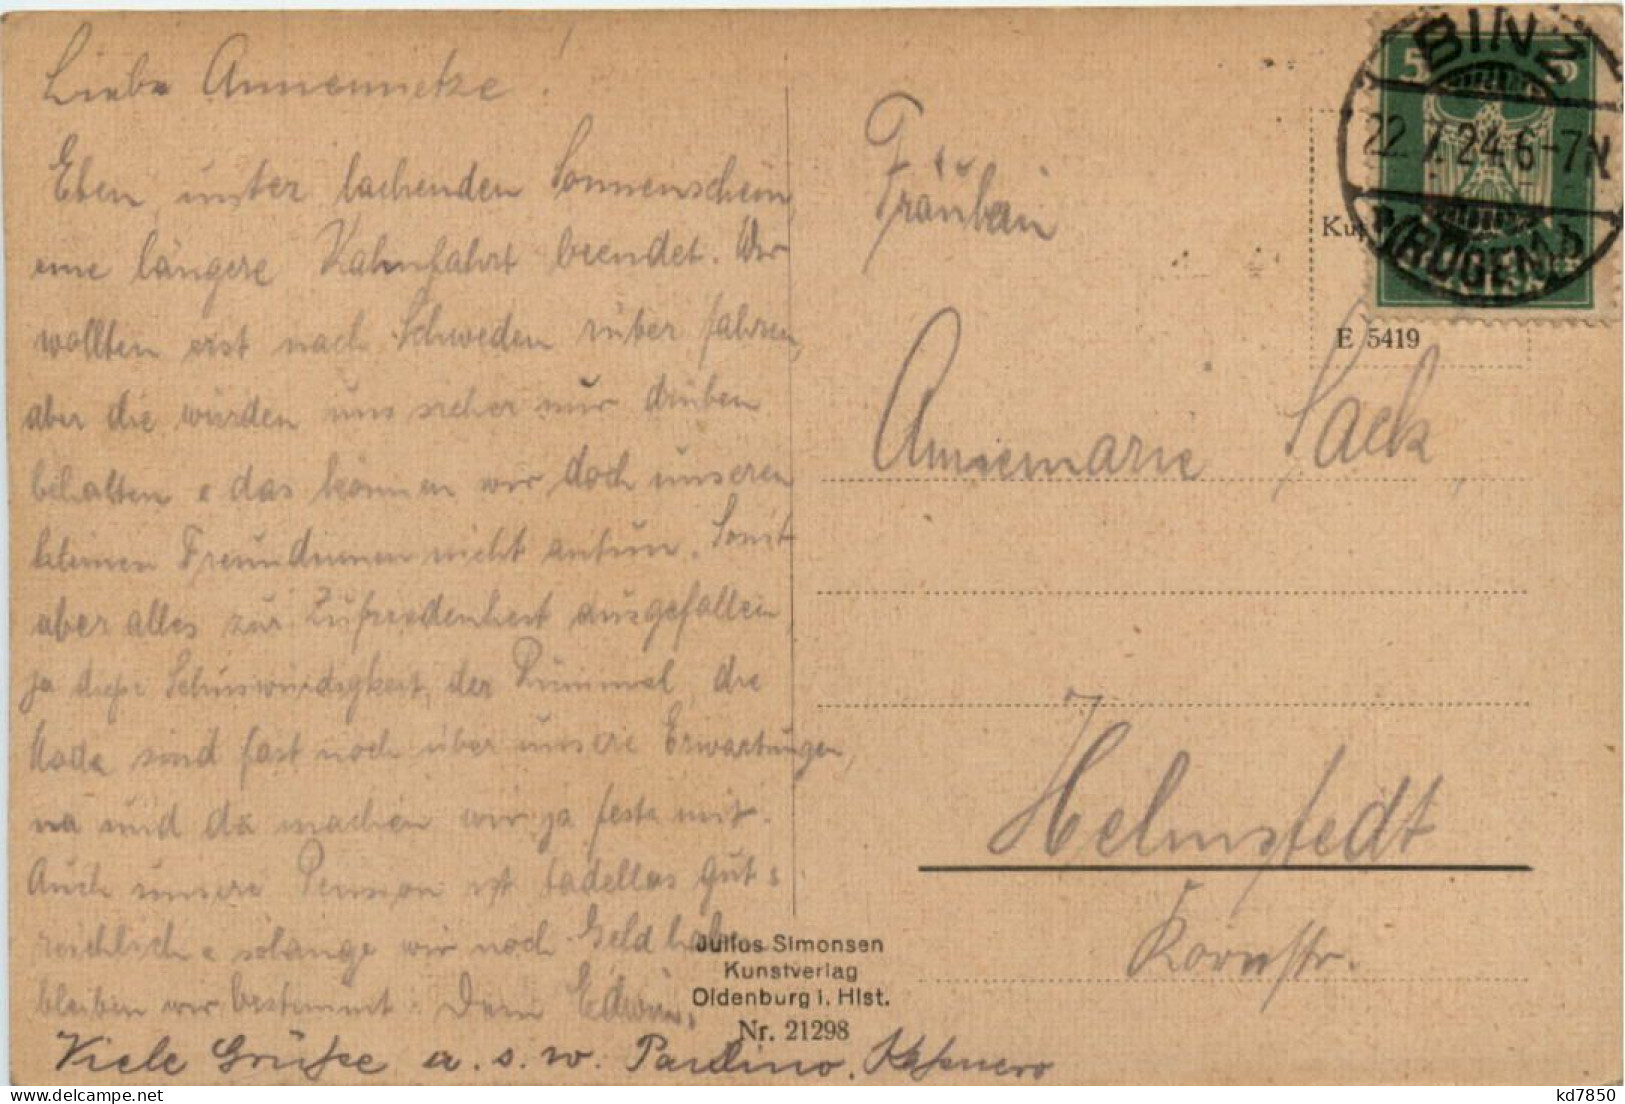 Liebe Annemietze!
Eben, unter lachenden Sonnenschein,
eine längere Kahnfahrt beendet. Wir
wollten erst nach Schweden rüber fahren,
aber die würden uns sicher nur drüben
behalten & das können wir doch unseren
kleinen Freundinnen nicht antun. Somit
aber alles zur Zufriedenheit ausgefallen
ja diese Sehnswürdigkeit, der Rummel, die
Mode sind fast noch über unsere Erwartungen,
na und da machen wir ja feste mit.
Auch unsere Pension ist tadellos gut &
reichlich & solange wir noch Geld haben
bleiben wir bestimmt. Dein Edwin.
Viele Grüße a. s. w. Paulino,
Fräulein
Annemarie Sack,
Helmstedt
Kornstr.
BINZ
22.7.24.6-7N
(RÜGEN)
5
E 5419
Julius Simonsen
Kunstverlag
Oldenburg i. Hlst.
Nr. 21298
delcampe.net
kd7850